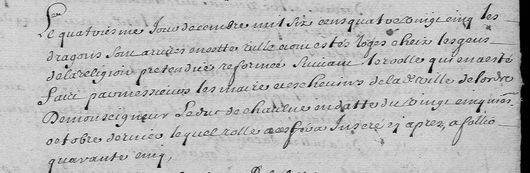 Le quatriesme Jour decembre mil six cens quatre vingt cinq les
dragons sont arrives en cette ville et ont estés logés cheix les gens
de la religion pretendue reformée suivant le rolle qui en a esté
faict par messieurs les maire et eschevins de la de ville de lordre
De monseigneur Le duc de en datte du vingt cinquies
octobre dernier lequel rolle est Inseré cy apres a follio
quarante cinq,